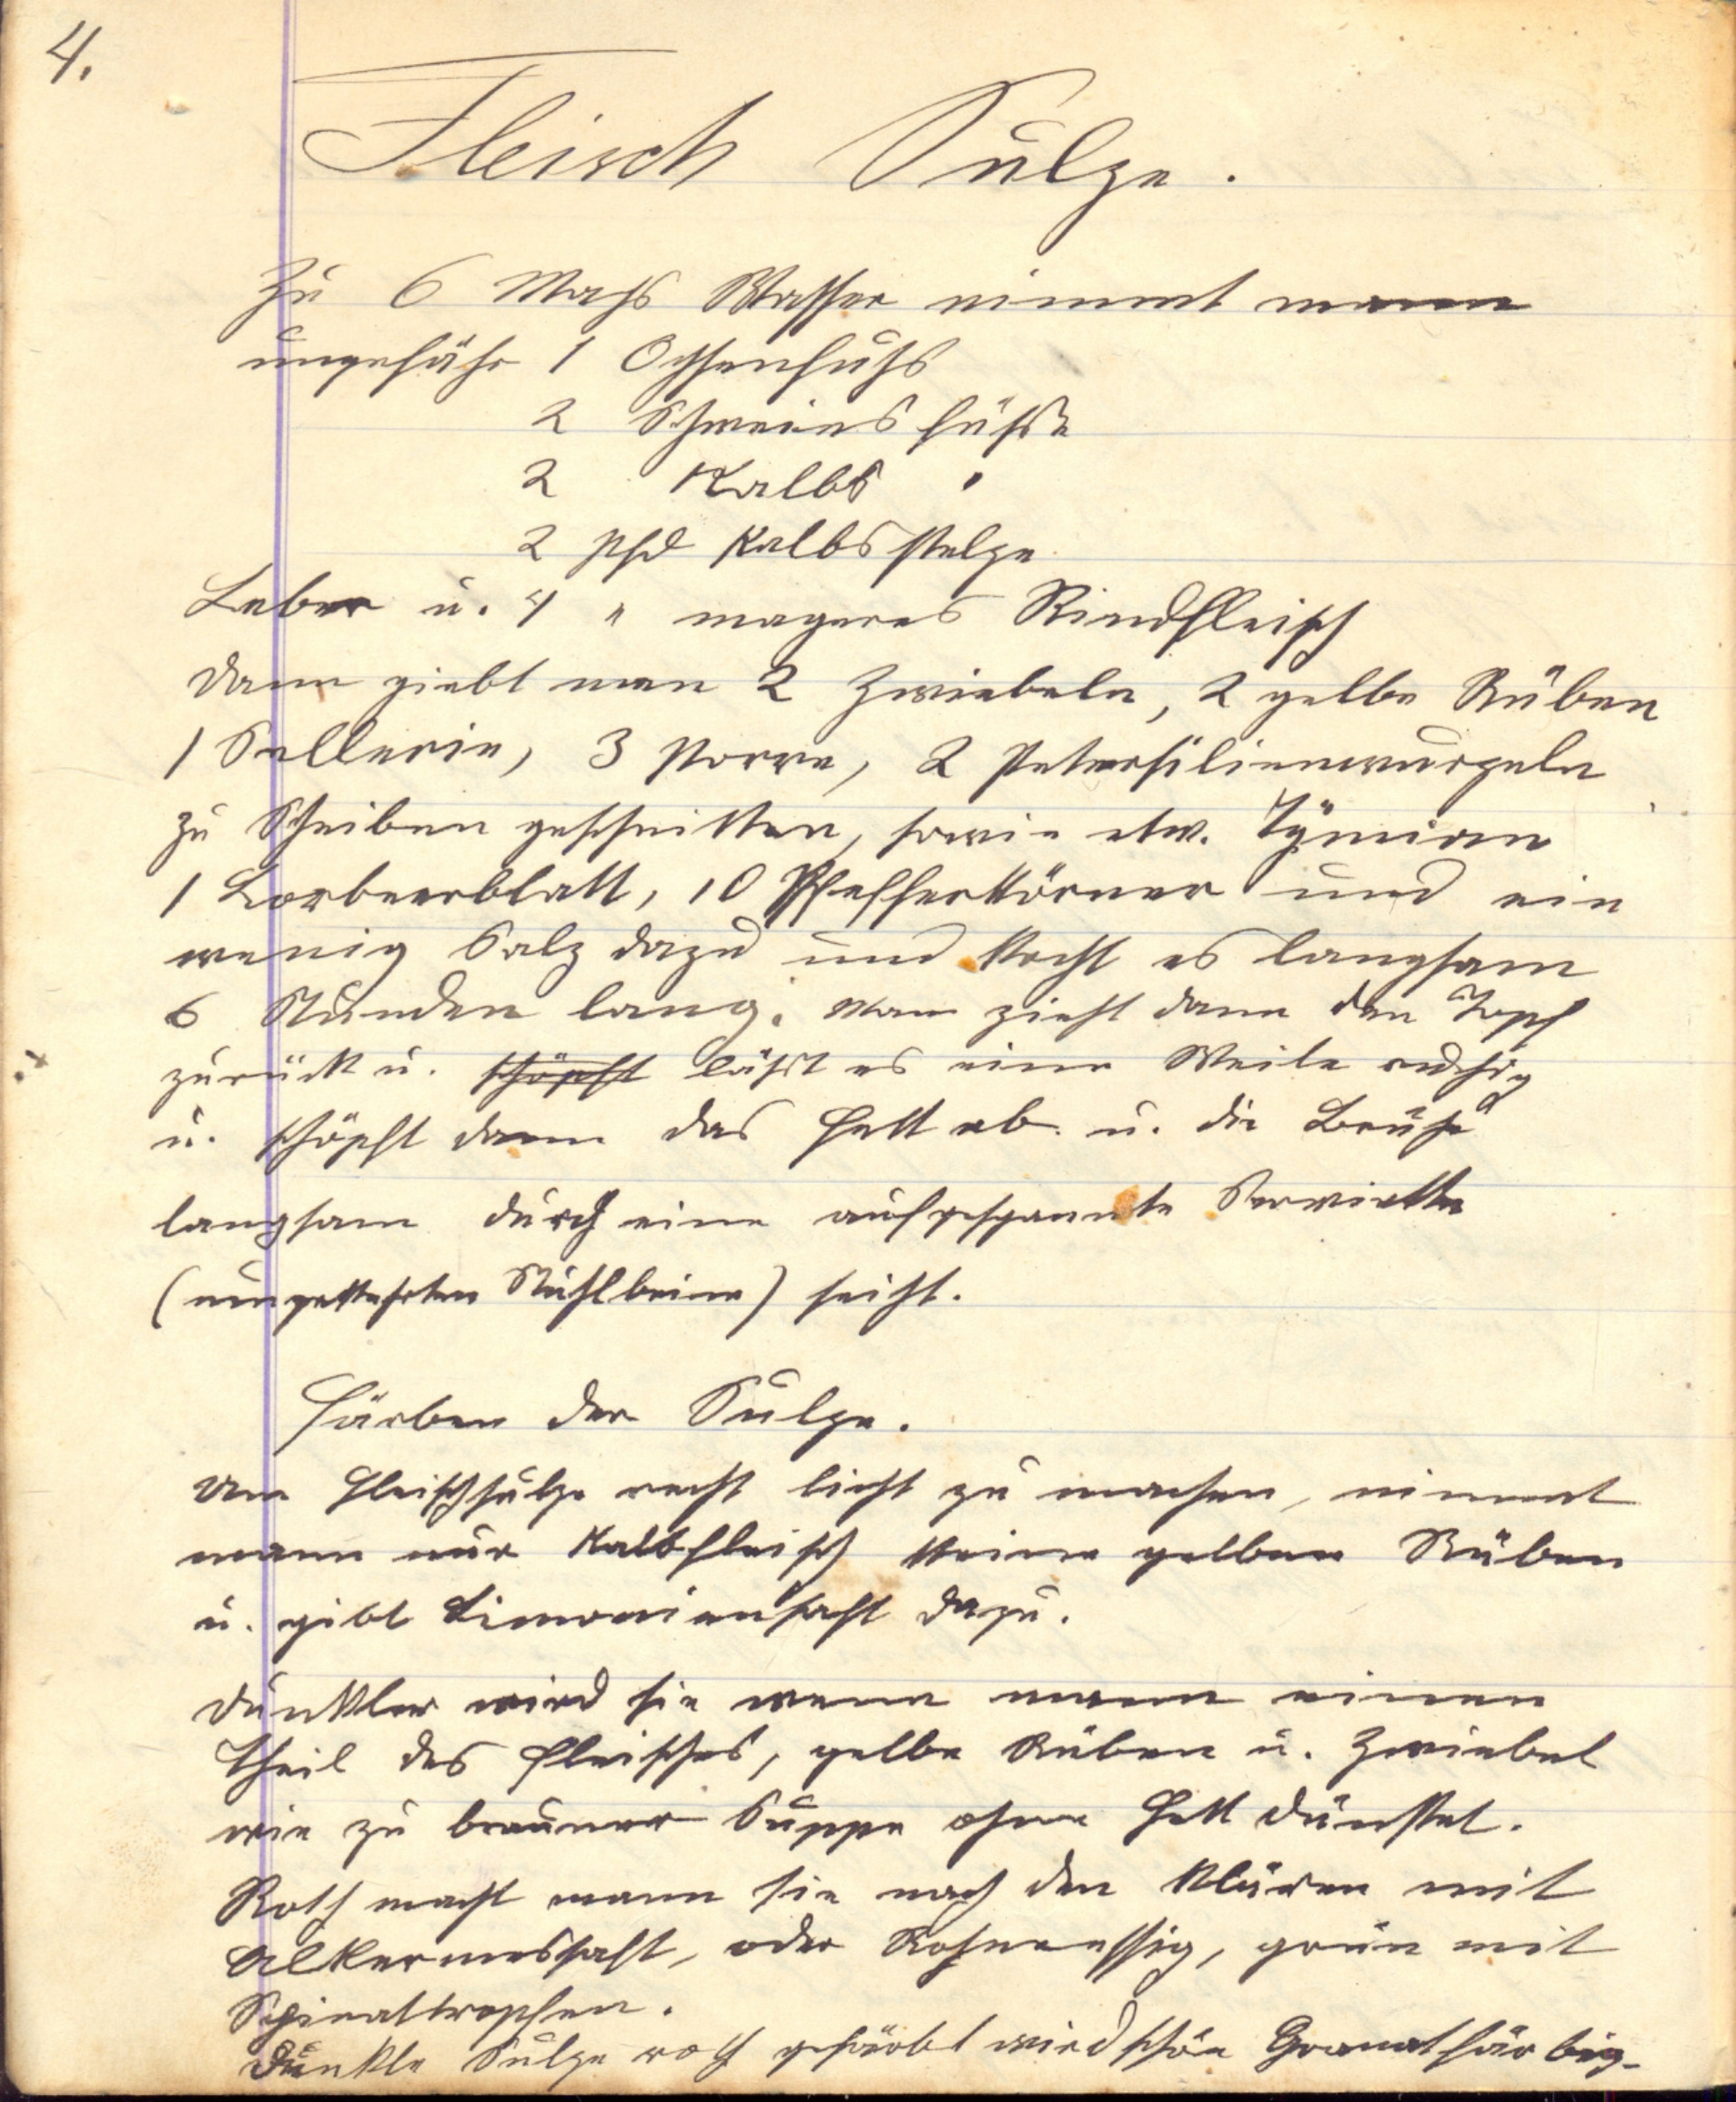 4.
Fleisch Sulze.
Zu 6 Mahs Wasser nimmt mann
ungefähr 1 Ochsenfuhs
2 Schweins fühse
2 Kalbs "
2 Pfd Kalbsstelze
Leber u. 4 " mageres Rindfleisch
dann giebt man 2 Zwiebeln, 2 gelbe Rüben
1 Sellerie, 3 Porre, 2 Petersilienwurzeln
zu Scheiben geschnitten, sowie etw. Tymian
1 Lorbeerblatt, 10 Pfefferkörner und ein
wenig Salz dazu und kocht es langsam
6 Stunden lang. Man zieht dann den Topf
zurück u. schöpft läßt es eine Weile ruhig
u. schöpft dann das Fett ab. u. die Brühe
langsam durch eine aufgespannte Serviette
(umgekehrten Stuhlbeine) seiht.
Färben der Sulze.
Um Fleischsulze recht licht zu machen, nimmt
mann nur Kalbfleisch keine gelben Rüben
u. gibt Limoniensaft dazu.
Dunkler wird sie wenn mann einen
Theil des Fleisches, gelbe Rüben u. Zwiebel
wie zu brauner Suppe ohne Fett dünstet.
Roth macht mann sie nach den Klären mit
Alkermessaft, oder Rohnenessig, grün mit
Spinattropfen.
Dunkle Sulze roth gefärbt wird schön Granatfärbig.